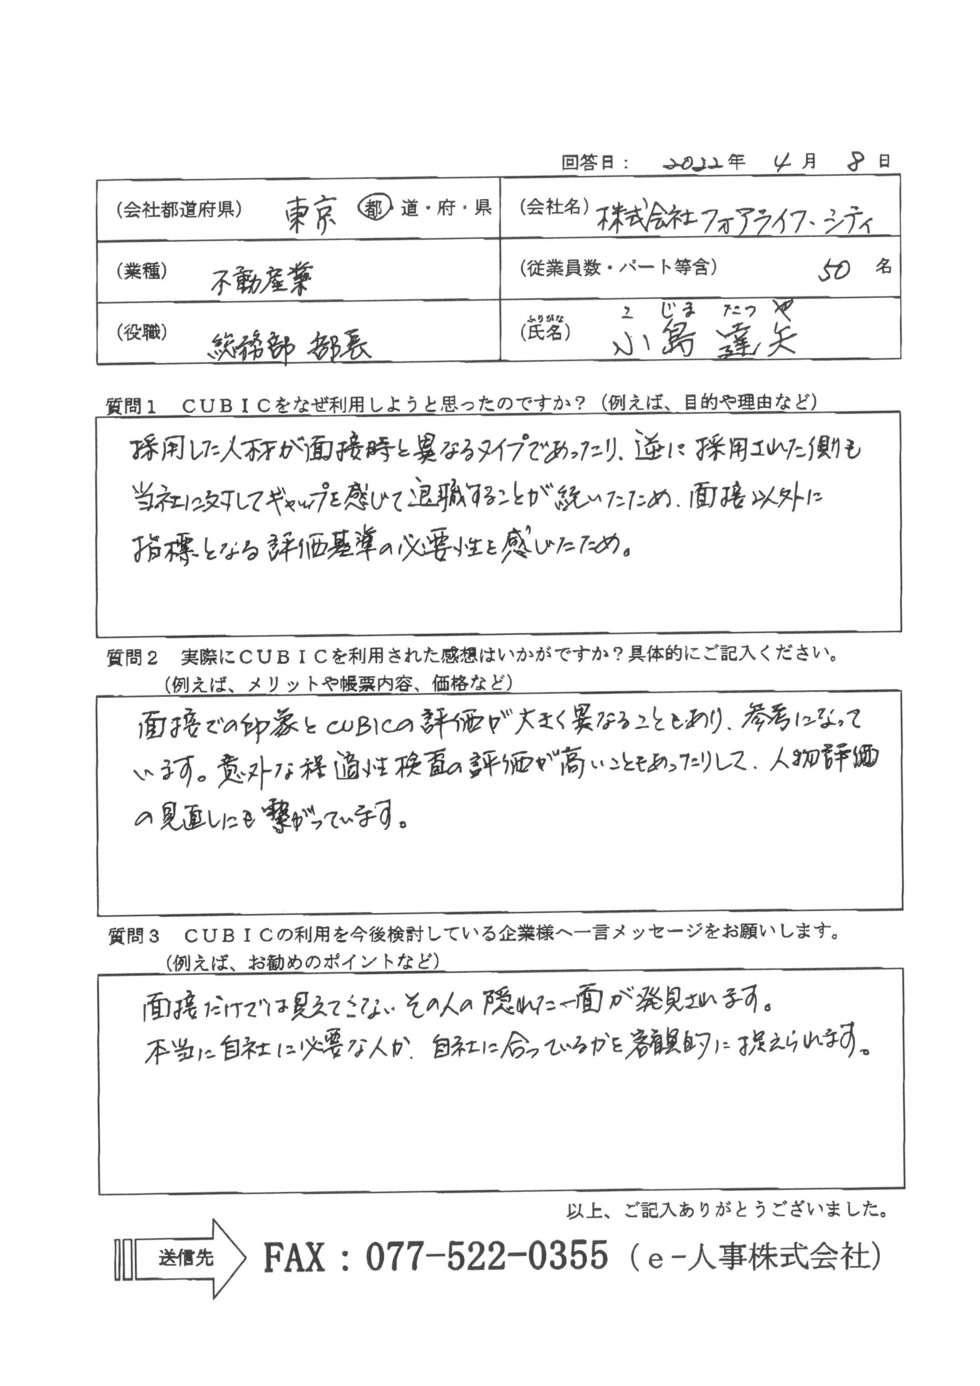 回答日： 2022年 4月 8日
（会社都道府県） 東京 都・道・府・県
（会社名） 株式会社フォアライフ・シティ
（業種） 不動産業
（従業員数・パート等含） 50 名
（役職） 総務部 部長
ふりがな こ じま たつ や
（氏名） 小島 達矢
質問１ ＣＵＢＩＣをなぜ利用しようと思ったのですか？（例えば、目的や理由など）
採用した人材が面接時と異なるタイプであったり、逆に採用された側も
当社に対してギャップを感じて退職することが続いたため、面接以外に
指標となる評価基準の必要性を感じたため。
質問２ 実際にＣＵＢＩＣを利用された感想はいかがですか？具体的にご記入ください。
（例えば、メリットや帳票内容、価格など）
面接での印象とCUBICの評価が大きく異なることもあり、参考になって
います。意外な程適性検査の評価が高いこともあったりして、人物評価
の見直しにも繋がっています。
質問３ ＣＵＢＩＣの利用を今後検討している企業様へ一言メッセージをお願いします。
（例えば、お勧めのポイントなど）
面接だけでは見えてこないその人の隠れた一面が発見されます。
本当に自社に必要な人か、自社に合っているかを客観的に捉えられます。
以上、ご記入ありがとうございました。
送信先 FAX：077-522-0355（ｅ-人事株式会社）